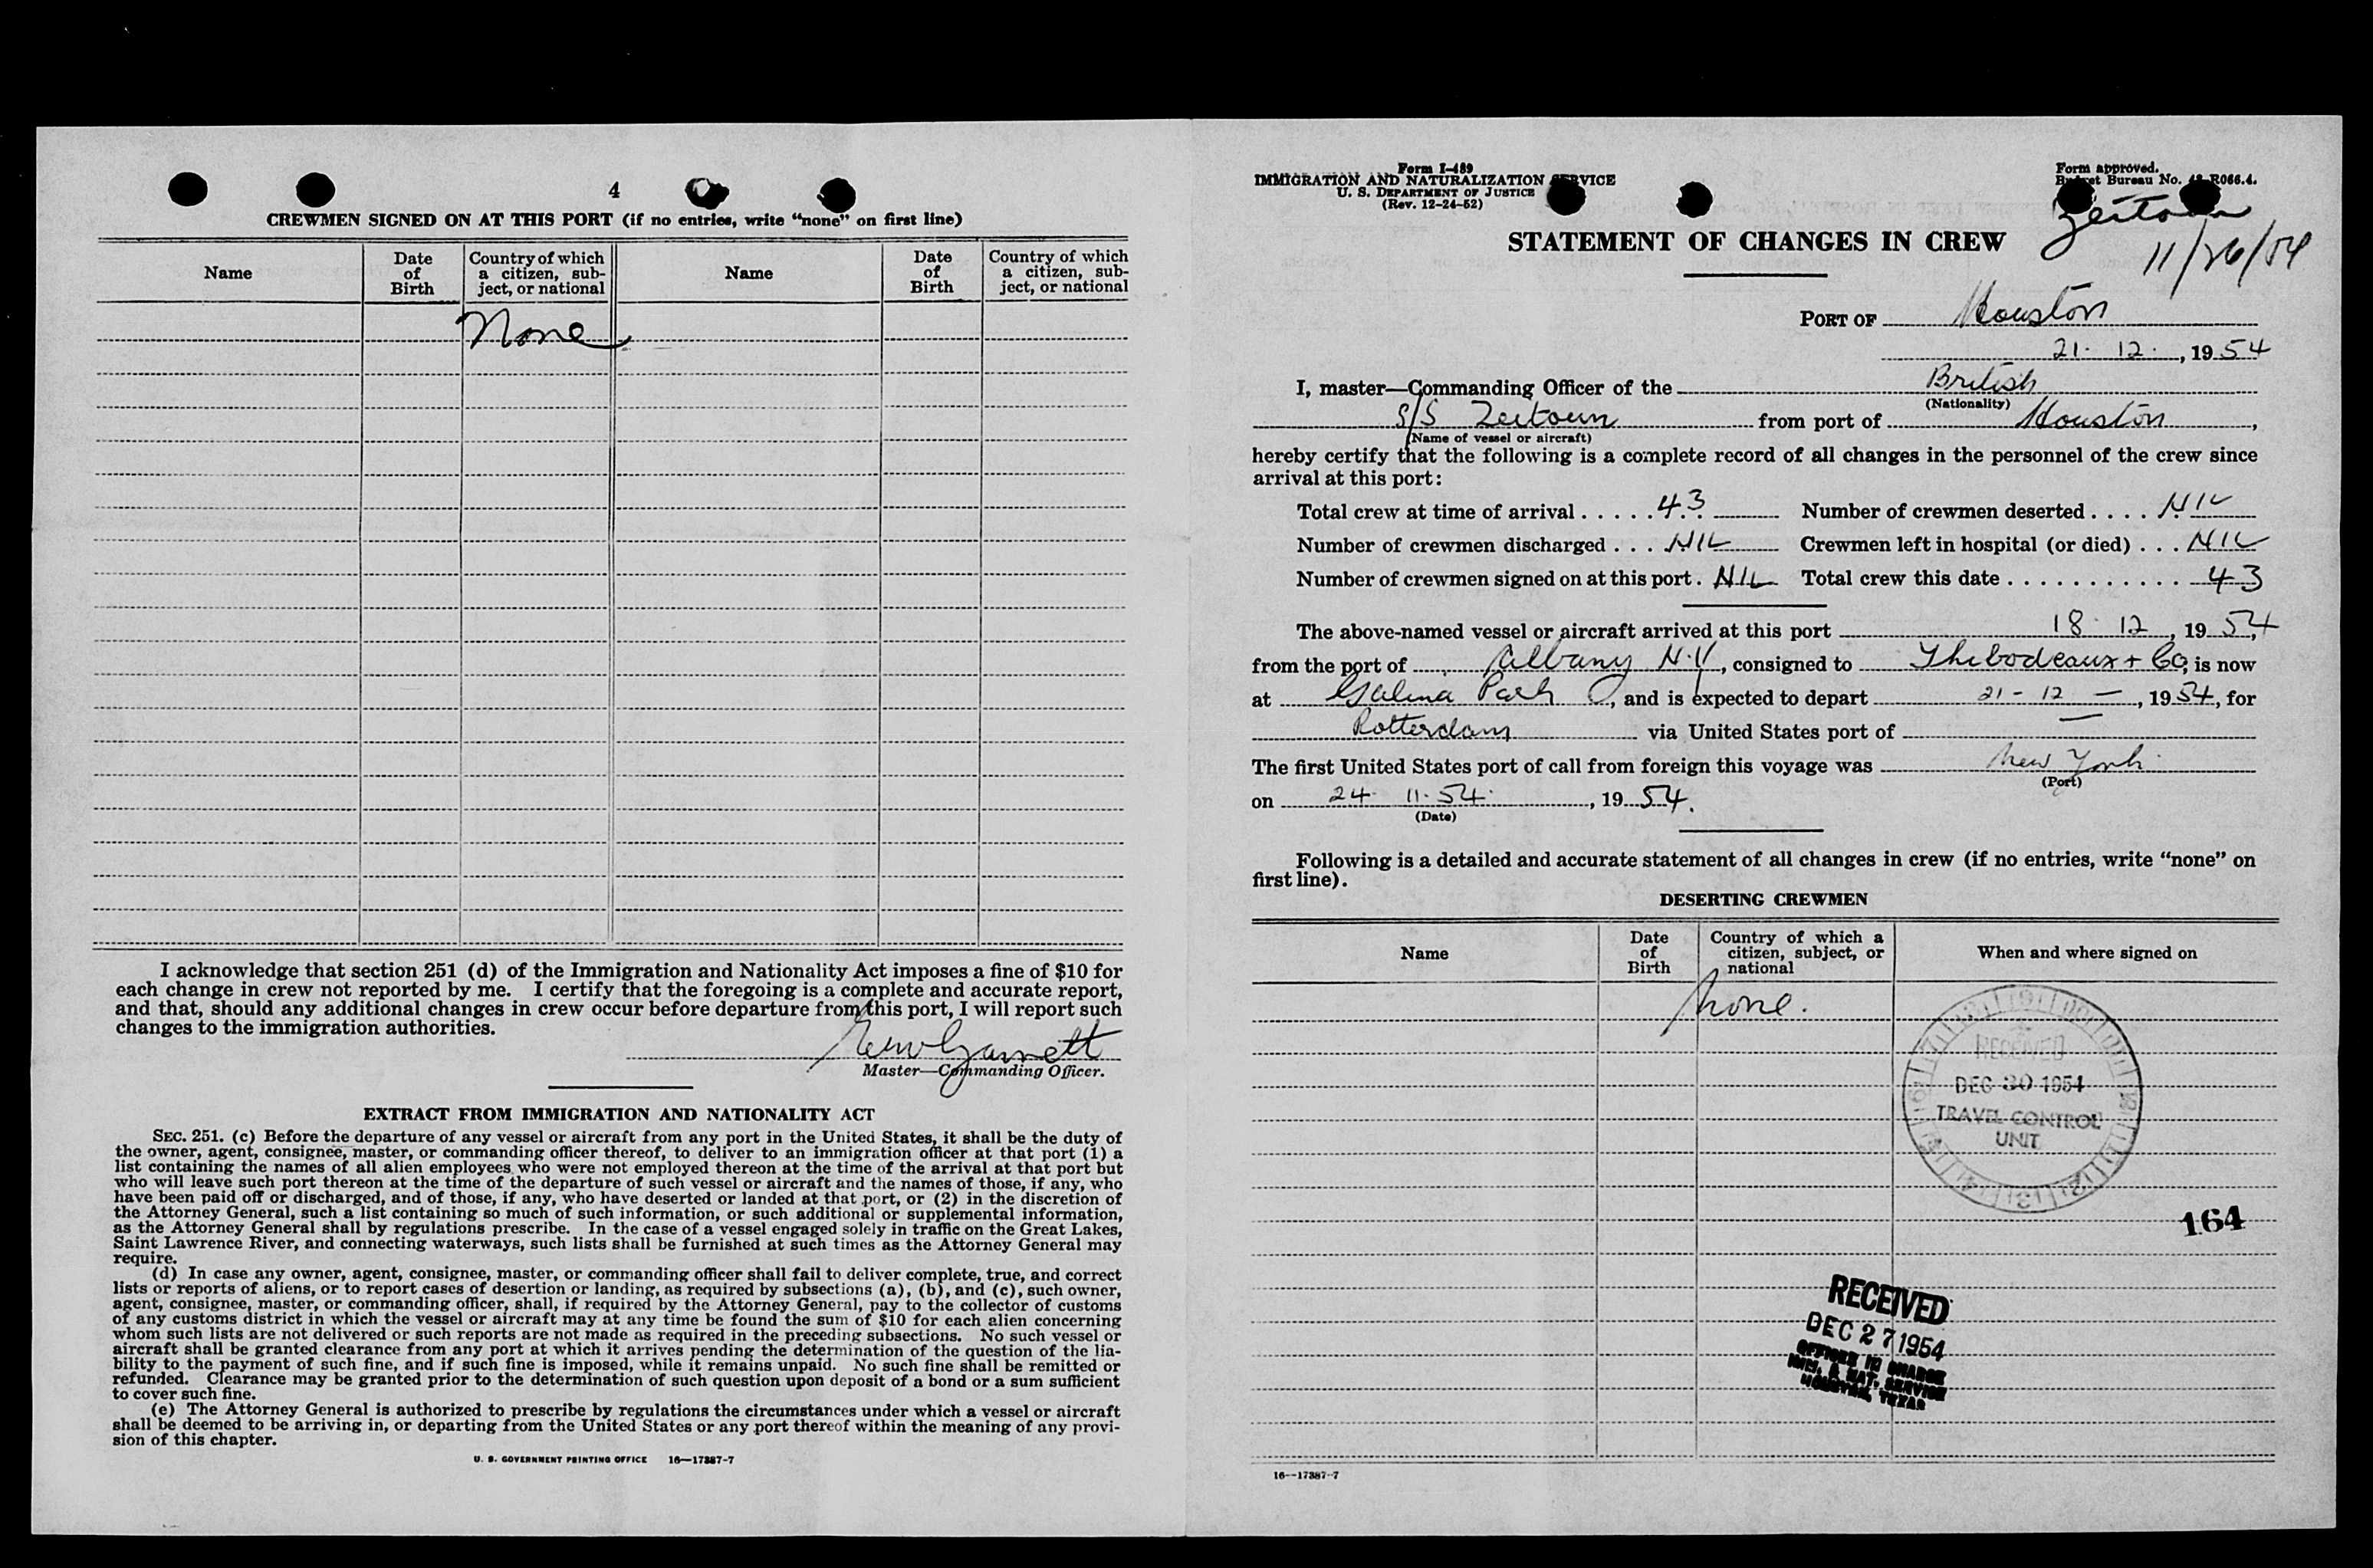 4
CREWMEN SIGNED ON AT THIS PORT (if no entries, write "none" on first line)
Name
Date of Birth
Country of which a citizen, subject, or national
Name
Date of Birth
Country of which a citizen, subject, or national
None
I acknowledge that section 251 (d) of the Immigration and Nationality Act imposes a fine of $10 for
each change in crew not reported by me. I certify that the foregoing is a complete and accurate report,
and that, should any additional changes in crew occur before departure from this port, I will report such
changes to the immigration authorities.
Garnett
Master—Commanding Officer.
EXTRACT FROM IMMIGRATION AND NATIONALITY ACT
SEC. 251. (c) Before the departure of any vessel or aircraft from any port in the United States, it shall be the duty of
the owner, agent, consignee, master, or commanding officer thereof, to deliver to an immigration officer at that port (1) a
list containing the names of all alien employees who were not employed thereon at the time of the arrival at that port but
who will leave such port thereon at the time of the departure of such vessel or aircraft and the names of those, if any, who
have been paid off or discharged, and of those, if any, who have deserted or landed at that port, or (2) in the discretion of
the Attorney General, such a list containing so much of such information, or such additional or supplemental information,
as the Attorney General shall by regulations prescribe. In the case of a vessel engaged solely in traffic on the Great Lakes,
Saint Lawrence River, and connecting waterways, such lists shall be furnished at such times as the Attorney General may
require.
(d) In case any owner, agent, consignee, master, or commanding officer shall fail to deliver complete, true, and correct
lists or reports of aliens, or to report cases of desertion or landing, as required by subsections (a), (b), and (c), such owner,
agent, consignee, master, or commanding officer, shall, if required by the Attorney General, pay to the collector of customs
of any customs district in which the vessel or aircraft may at any time be found the sum of $10 for each alien concerning
whom such lists are not delivered or such reports are not made as required in the preceding subsections. No such vessel or
aircraft shall be granted clearance from any port at which it arrives pending the determination of the question of the lia-
bility to the payment of such fine, and if such fine is imposed, while it remains unpaid. No such fine shall be remitted or
refunded. Clearance may be granted prior to the determination of such question upon deposit of a bond or a sum sufficient
to cover such fine.
(e) The Attorney General is authorized to prescribe by regulations the circumstances under which a vessel or aircraft
shall be deemed to be arriving in, or departing from the United States or any port thereof within the meaning of any provi-
sion of this chapter.
U. S. GOVERNMENT PRINTING OFFICE 16—17387-7
Form I-489
IMMIGRATION AND NATURALIZATION SERVICE
U. S. DEPARTMENT OF JUSTICE
(Rev. 12-24-52)
Form approved.
Budget Bureau No. 43-R066.4.
Zeitoun
11/26/54
STATEMENT OF CHANGES IN CREW
PORT OF Houston
21. 12. , 19 54
I, master—Commanding Officer of the British
(Nationality)
S/S Zeitoun from port of Houston,
(Name of vessel or aircraft)
hereby certify that the following is a complete record of all changes in the personnel of the crew since
arrival at this port:
Total crew at time of arrival ..... 43 Number of crewmen deserted .... NIL
Number of crewmen discharged ... NIL Crewmen left in hospital (or died) ... NIL
Number of crewmen signed on at this port . NIL Total crew this date ............ 43
The above-named vessel or aircraft arrived at this port 18 12 , 19 54,
from the port of Albany N.Y, consigned to Thibodeaux + Co, is now
at Galena Park, and is expected to depart 21 - 12 —, 19 54, for
Rotterdam via United States port of —
The first United States port of call from foreign this voyage was New York
(Port)
on 24. 11. 54. , 19 54.
(Date)
Following is a detailed and accurate statement of all changes in crew (if no entries, write "none" on
first line).
DESERTING CREWMEN
Name
Date of Birth
Country of which a citizen, subject, or national
When and where signed on
None.
RECEIVED
DEC 30 1954
TRAVEL CONTROL
UNIT
164
RECEIVED
DEC 27 1954
OFFICER IN CHARGE
IMM. & NAT. SERVICE
HOUSTON, TEXAS
16—17387-7